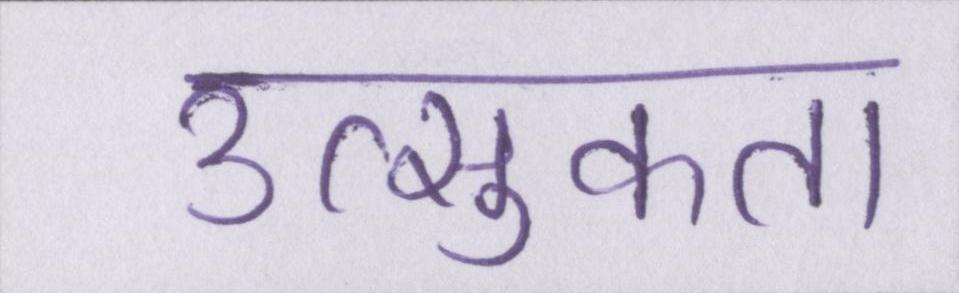 उत्सुकता